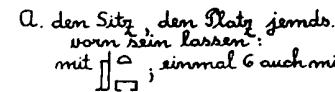 a. den Sitz, den Platz jemds.
vorn sein lassen:
mit ; einmal G auch mi